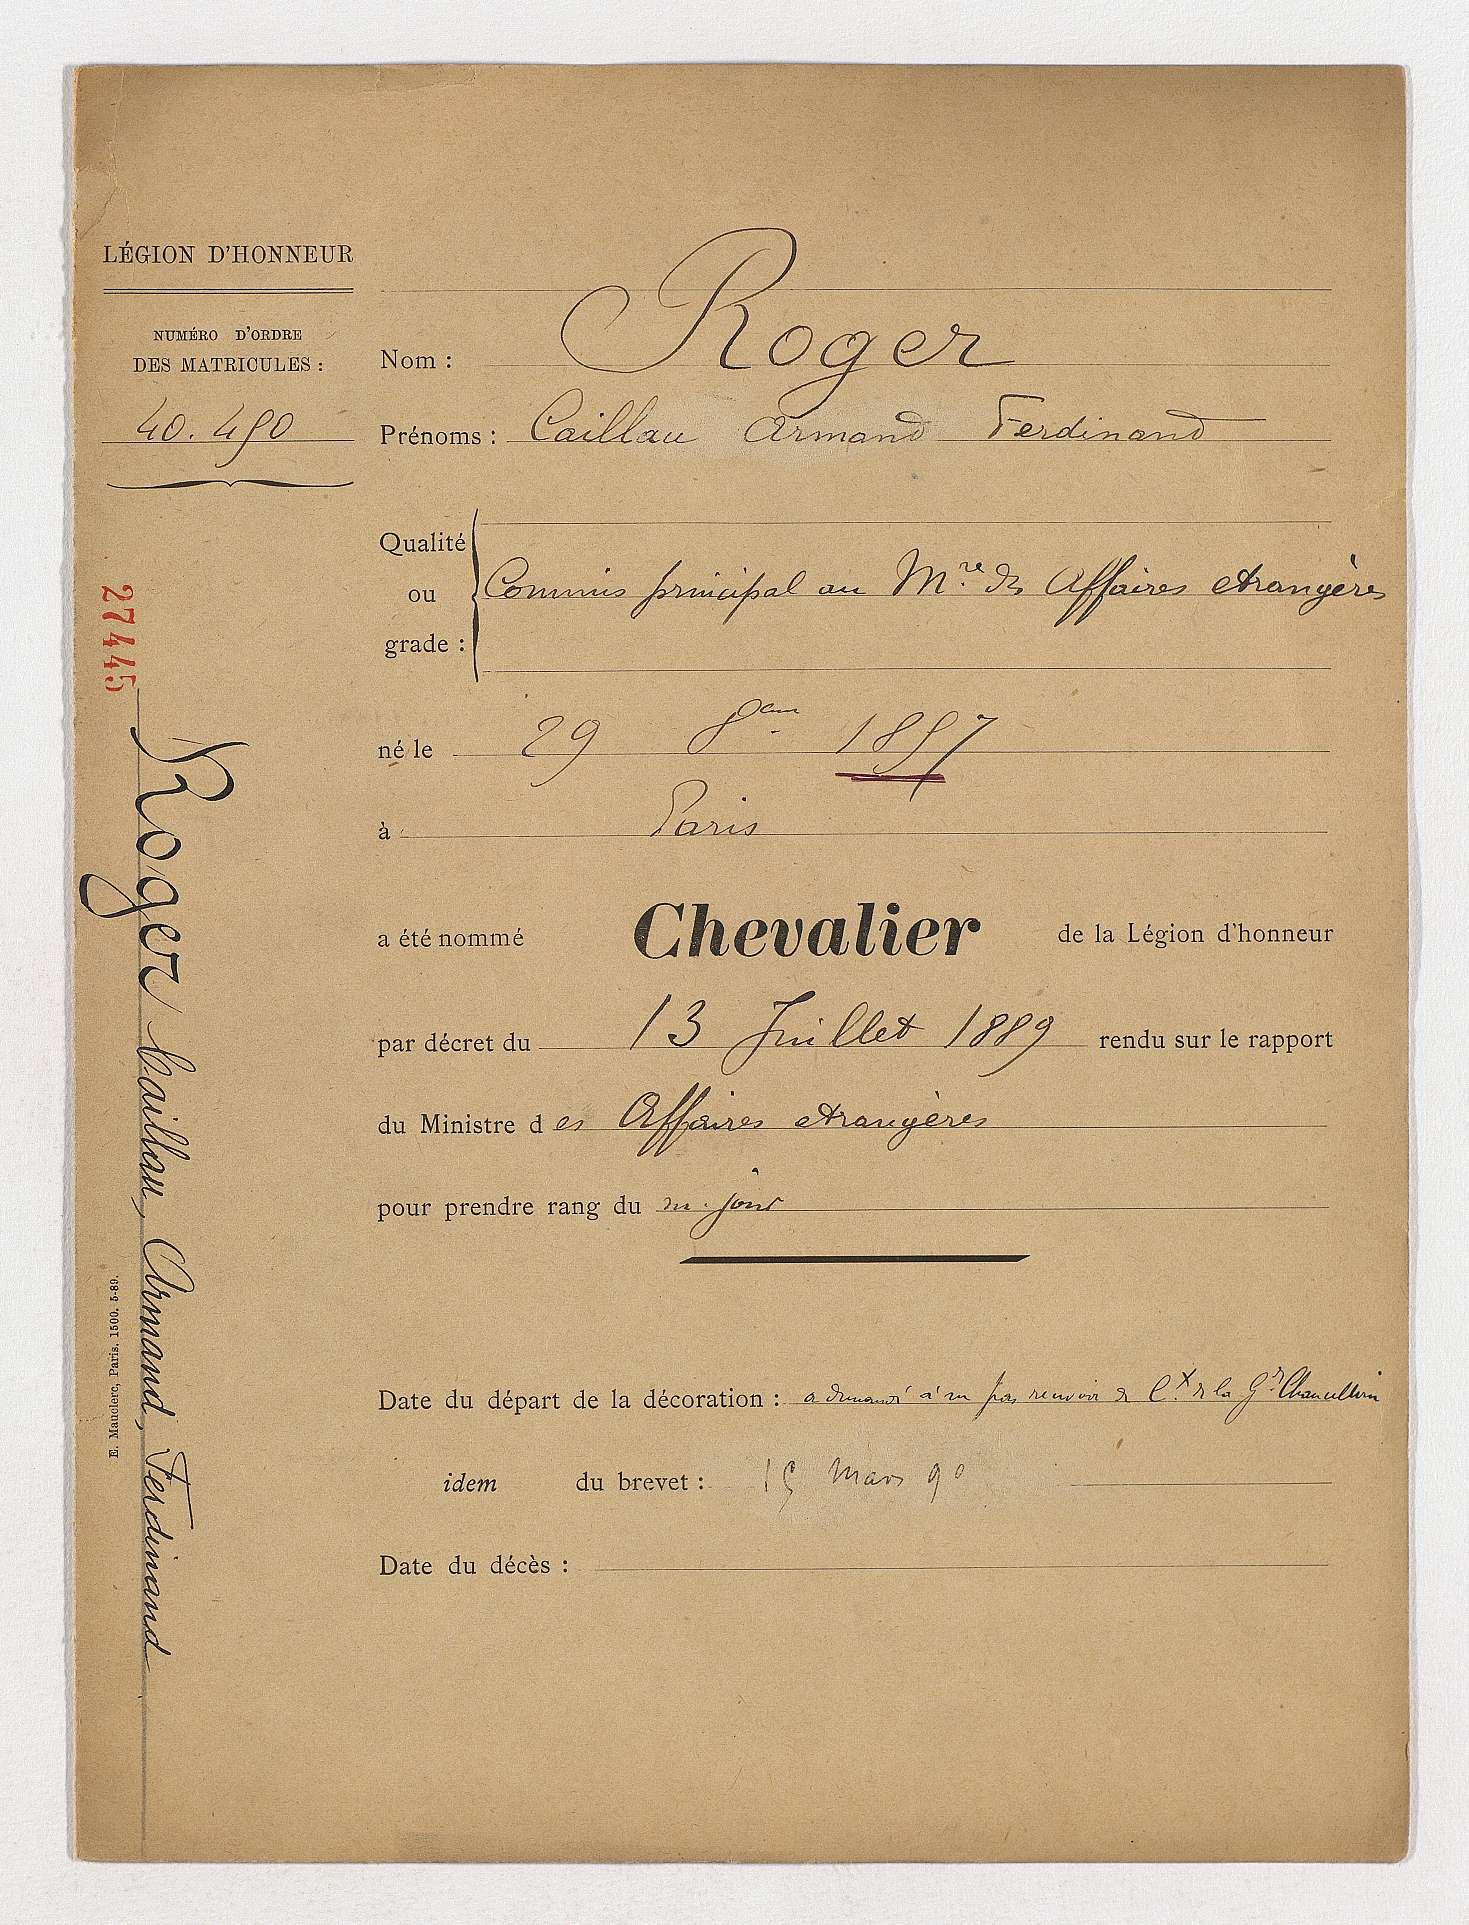 LÉGION D'HONNEUR
NUMÉRO D'ORDRE
DES MATRICULES :
40.490
27445
Roger Caillau, Armand, Ferdinand
E. Mauclerc, Paris. 1500. 5-89.
Nom : Roger
Prénoms : Caillau Armand Ferdinand
Qualité
ou
grade :
Commis principal au Mre des Affaires etrangères
né le 29 8bre 1857
à Paris
a été nommé Chevalier de la Légion d'honneur
par décret du 13 Juillet 1889 rendu sur le rapport
du Ministre des Affaires etrangères
pour prendre rang du m. jour
Date du départ de la décoration : a demandé à ne pas recevoir de Cx de la Gde Chancellerie
idem du brevet : 15 Mars 90
Date du décès :